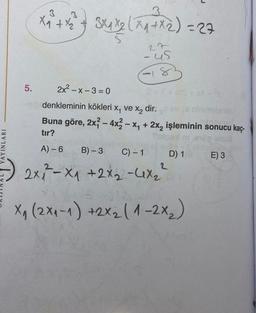 x₁³ + x₂³ + 3x₁x₂(x₁+x₂)³ = 27
5
27
-45
-18
5. 2x² – x – 3 = 0
denkleminin kökleri x₁ ve x₂ dir.
Buna göre, 2x₁² – 4x₂² – x₁ + 2x₂ işleminin sonucu kaç-
tır?
A) – 6 B) – 3 C) – 1 D) 1 E) 3
2x₁² - x₁ + 2x₂ - 4x₂²
x₁(2x₁-1) + 2x₂(1-2x₂)
YAYINLARI